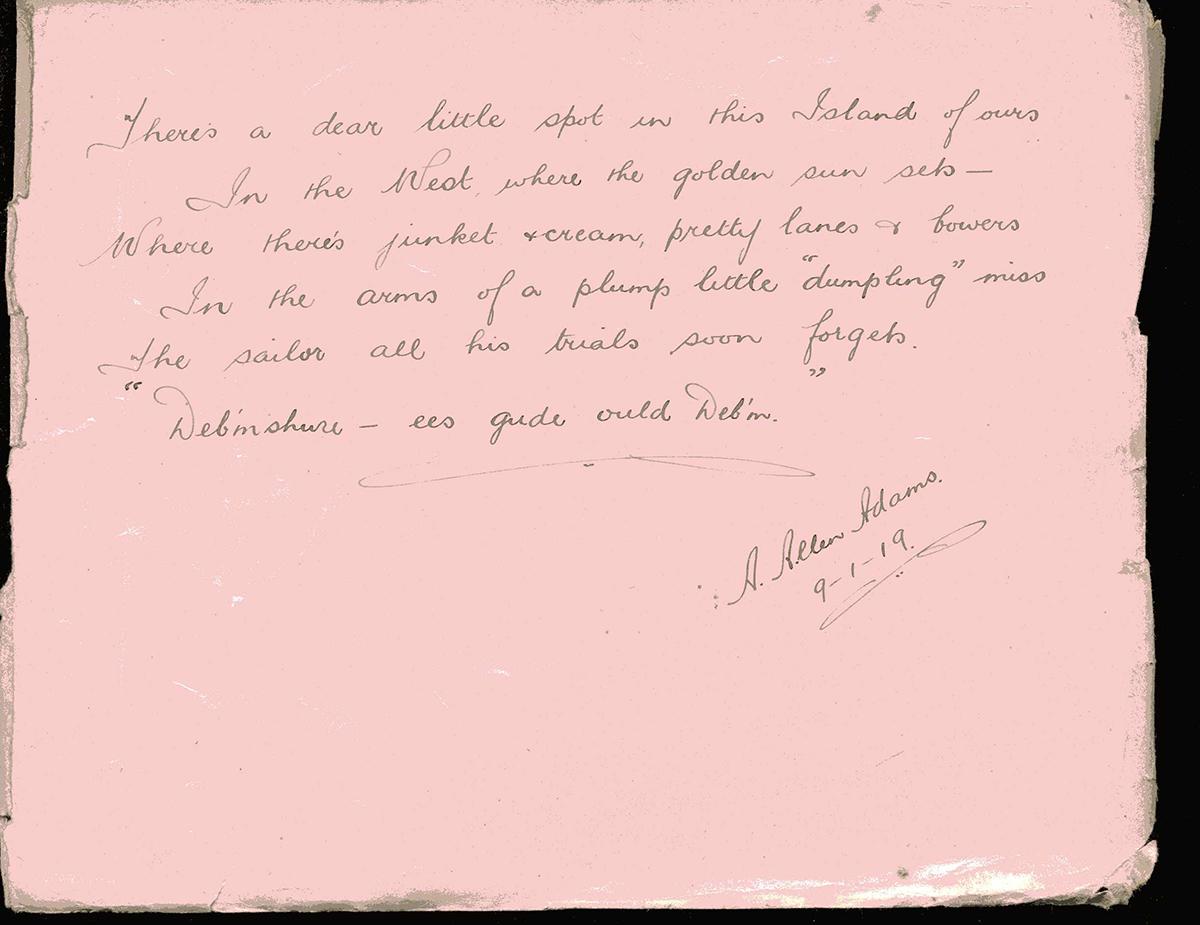 There's a dear little spot in this Island of ours
In the West, where the golden sun sets —
Where there's junket & cream, pretty lanes & bowers
In the arms of a plump little "dumpling" miss
The sailor all his trials soon forgets.
"Deb'mshure — ees gude ould Deb'm."
A. Allen Adams.
9-1-19.